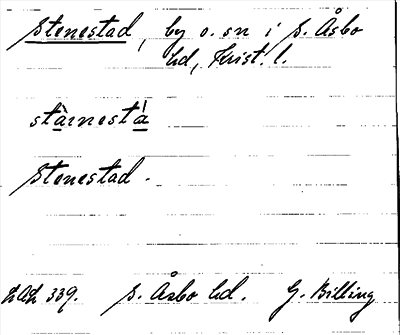 Stenestad, by o. sn i S. Åsbo
hd, Krist. l.
stà̱rnestá̱
Stenestad.
LAL 339. S. Åsbo hd. G. Billing